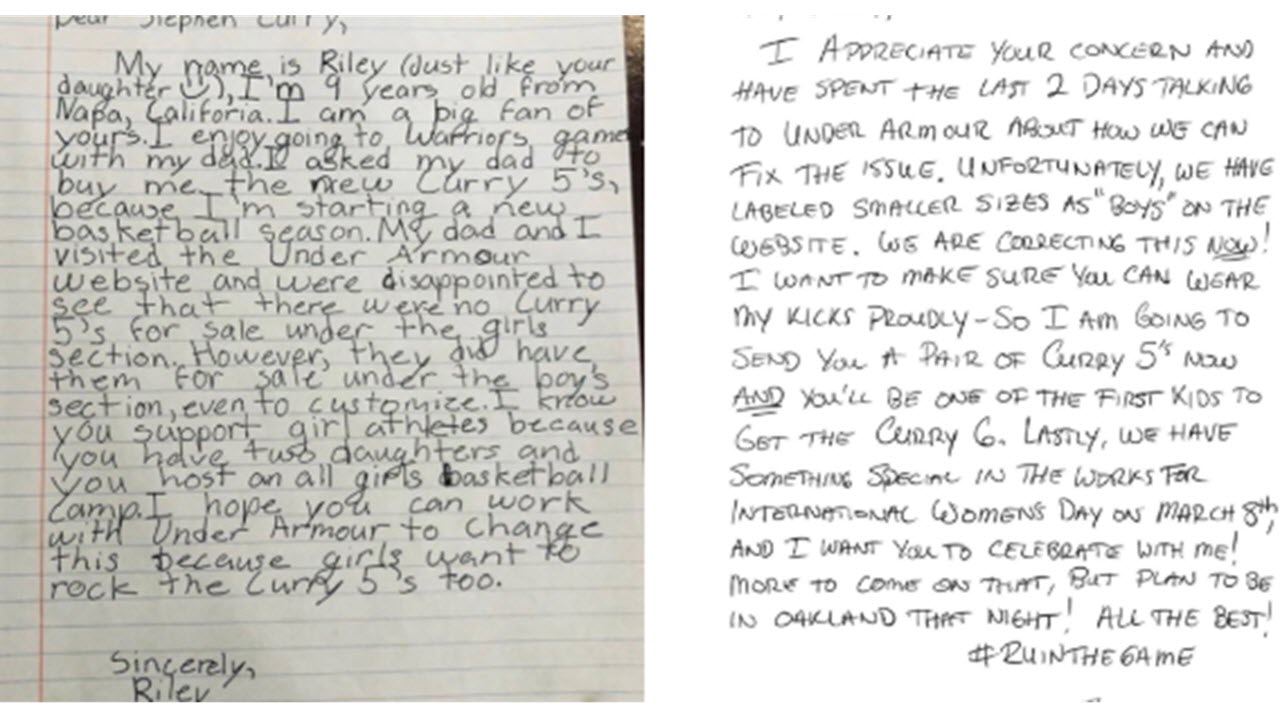 Dear Stephen Curry,
My name is Riley (Just like your
daughter), I'm 9 years old from
Napa, Califoria. I am a big fan of
yours. I enjoy going to Warriors game
with my dad. I asked my dad to
buy me the new Curry 5's,
because I'm starting a new
basketball season. My dad and I
visited the Under Armour
website and were disappointed to
see that there were no Curry
5's for sale under the girls
section. However, they did have
them for sale under the boy's
section, even to customize. I know
you support girl athletes because
you have two daughters and
you host an all girls basketball
camp. I hope you can work
with Under Armour to change
this because girls want to
rock the Curry 5's too.
Sincerely,
Riley
I APPRECIATE YOUR CONCERN AND
HAVE SPENT THE LAST 2 DAYS TALKING
TO UNDER ARMOUR ABOUT HOW WE CAN
FIX THE ISSUE. UNFORTUNATELY, WE HAVE
LABELED SMALLER SIZES AS "BOYS" ON THE
WEBSITE. WE ARE CORRECTING THIS NOW!
I WANT TO MAKE SURE YOU CAN WEAR
MY KICKS PROUDLY - SO I AM GOING TO
SEND YOU A PAIR OF CURRY 5's NOW
AND YOU'LL BE ONE OF THE FIRST KIDS TO
GET THE CURRY 6. LASTLY, WE HAVE
SOMETHING SPECIAL IN THE WORKS FOR
INTERNATIONAL WOMENS DAY ON MARCH 8th,
AND I WANT YOU TO CELEBRATE WITH ME!
MORE TO COME ON THAT, BUT PLAN TO BE
IN OAKLAND THAT NIGHT! ALL THE BEST!
#RUINTHEGAME